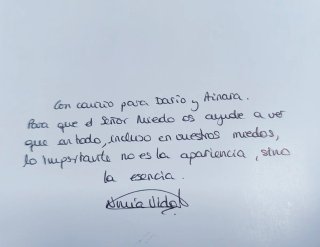 Con cariño para Darío y Ainara.
Para que el Señor Miedo os ayude a ver
que en todo, incluso en nuestros miedos,
lo importante no es la apariencia, sino
la esencia.
Vidal